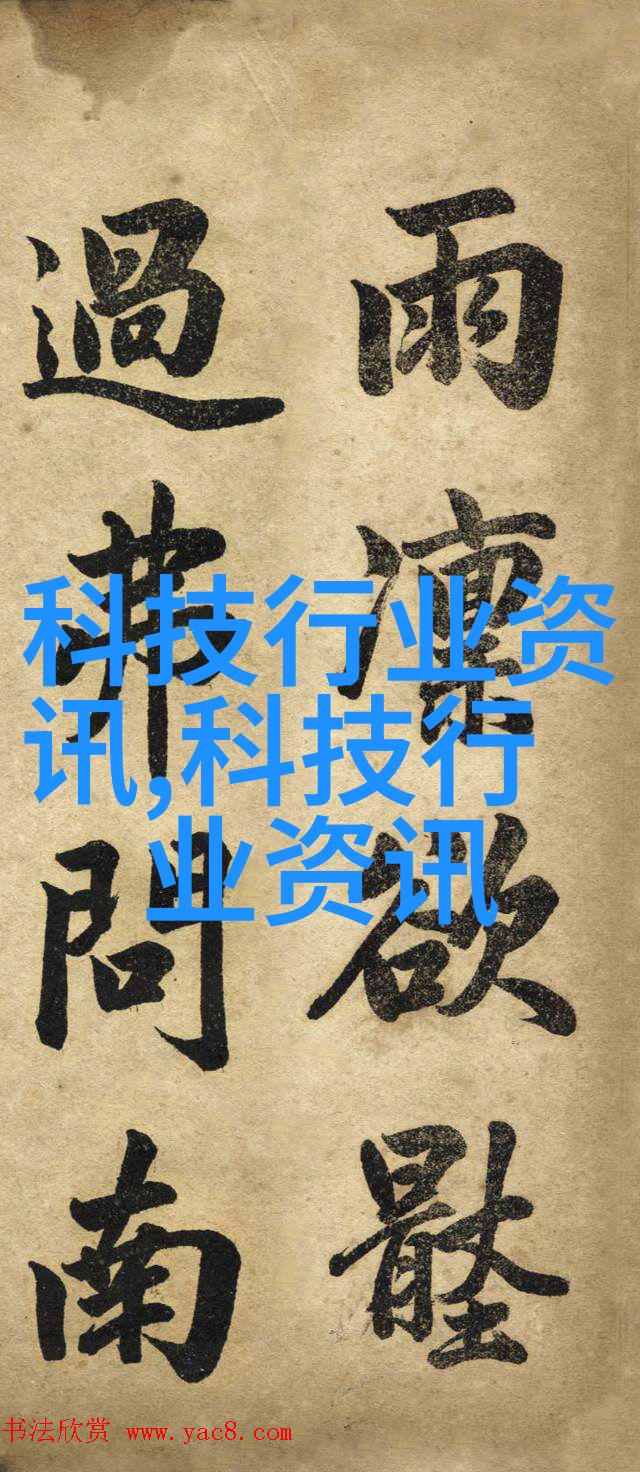 雨欲
過問南
科技行业资
讯,科技行
业资讯
书法欣赏 www.yac8.com